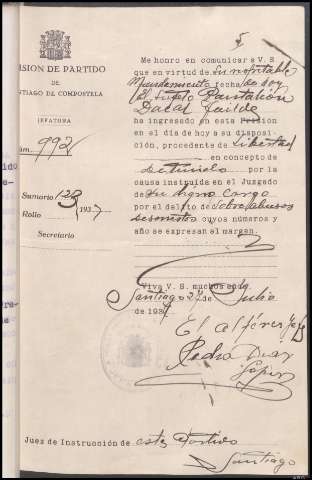 5
Me honro en comunicar a V. S.
que en virtud de su respetable
Mandamiento fecha de hoy
el sujeto Pantaleón
ha ingresado en esta Prisión
en el día de hoy a su disposi-
ción, procedente de Libertad
en concepto de
detenido por la
causa instruida en el Juzgado
de su digno cargo
por el delito de sobre abusos
deshonestos cuyos números y
año se expresan al margen.
Viva V. S. muchos años
Santiago 27 de Julio
de 1937
El alférez Jefe
Pedro Diaz
López
ISION DE PARTIDO
DE
NTIAGO DE COMPOSTELA
JEFATURA
úm. 992
Sumario 123
Rollo 1937
Secretario
Juez de Instrucción de este Partido
Santiago